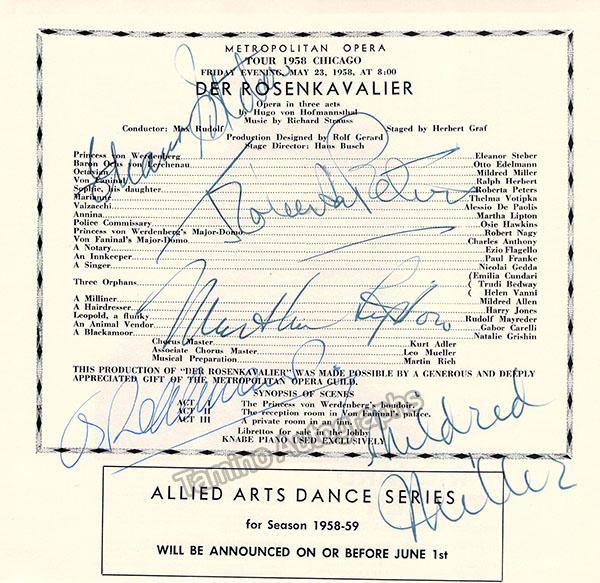 METROPOLITAN OPERA
TOUR 1958 CHICAGO
FRIDAY EVENING, MAY 23, 1958, AT 8:00
DER ROSENKAVALIER
Opera in three acts
by Hugo von Hofmannsthal
Music by Richard Strauss
Conductor: Max Rudolf Staged by Herbert Graf
Production Designed by Rolf Gerard
Stage Director: Hans Busch
Princess von Werdenberg Eleanor Steber
Baron Ochs von Lerchenau Otto Edelmann
Octavian Mildred Miller
Von Faninal Ralph Herbert
Sophie, his daughter Roberta Peters
Marianne Thelma Votipka
Valzacchi Alessio De Paolis
Annina Martha Lipton
Police Commissary Osie Hawkins
Princess von Werdenberg's Major-Domo Robert Nagy
Von Faninal's Major-Domo Charles Anthony
A Notary Ezio Flagello
An Innkeeper Paul Franke
A Singer Nicolai Gedda
(Emilia Cundari
Three Orphans ( Trudi Bedway
( Helen Vanni
A Milliner Mildred Allen
A Hairdresser Harry Jones
Leopold, a flunky Rudolf Mayreder
An Animal Vendor Gabor Carelli
A Blackamoor Natalie Grishin
Chorus Master Kurt Adler
Associate Chorus Master Leo Mueller
Musical Preparation Martin Rich
THIS PRODUCTION OF "DER ROSENKAVALIER" WAS MADE POSSIBLE BY A GENEROUS AND DEEPLY
APPRECIATED GIFT OF THE METROPOLITAN OPERA GUILD.
SYNOPSIS OF SCENES
ACT I The Princess von Werdenberg's boudoir.
ACT II The reception room in Von Faninal's palace.
ACT III A private room in an inn.
Librettos for sale in the lobby
KNABE PIANO USED EXCLUSIVELY
Eleanor Steber
Roberta Peters
Martha Lipton
Mildred
Miller
Tamino Autographs
ALLIED ARTS DANCE SERIES
for Season 1958-59
WILL BE ANNOUNCED ON OR BEFORE JUNE 1st